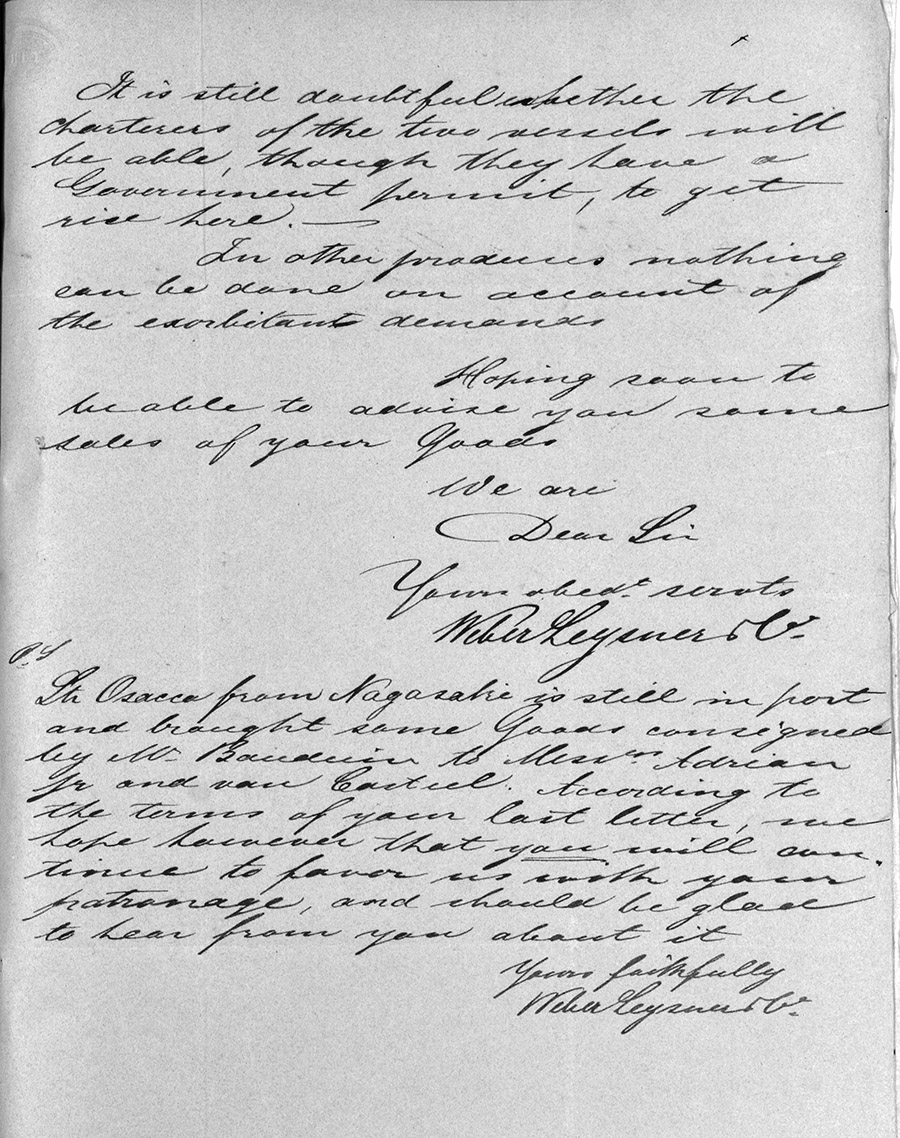 It is still doubtful whether the
charterers of the two vessels will
be able, though they have a
Government permit, to get
rise here. —
In other produces nothing
can be done on account of
the exorbitant demands
Hoping soon to
be able to advise you some
sales of your Goods
We are
Dear Sir
Yours obedt. servts
Weber Leysner & Co.
P.S
Str Osacca from Nagasakie is still in port
and brought some Goods consigned
by Mr Bauduin to Messrs Adrian
Jr and van Casteel. According to
the terms of your last letter, we
hope however that you will con-
tinue to favor us with your
patronage, and should be glad
to hear from you about it
Yours faithfully
Weber Leysner & Co.